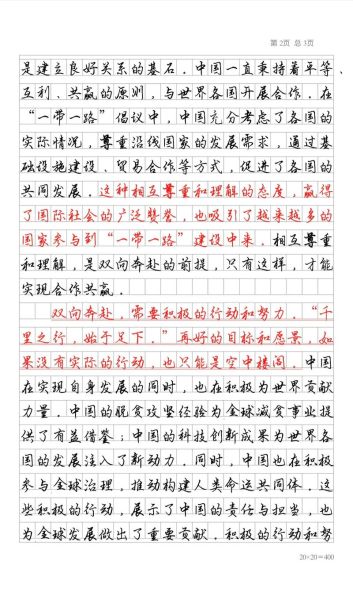 第2页 总3页
是建立良好关系的基石．中国一直秉持着平等、
互利、共赢的原则，与世界各国开展合作．在
“一带一路”倡议中，中国充分考虑了各国的
实际情况，尊重沿线国家的发展需求，通过基
础设施建设、贸易合作等方式，促进了各国的
共同发展．这种相互尊重和理解的态度，赢得
了国际社会的广泛赞誉，也吸引了越来越多的
国家参与到“一带一路”建设中来．相互尊重
和理解，是双向奔赴的前提，只有这样，才能
实现合作共赢．
双向奔赴，需要积极的行动和努力．“千
里之行，始于足下．”再好的目标和愿景，如
果没有实际的行动，也只能是空中楼阁．中国
在实现自身发展的同时，也在积极为世界贡献
力量．中国的脱贫攻坚经验为全球减贫事业提
供了有益借鉴；中国的科技创新成果为世界各
国的发展注入了新动力．同时，中国也在积极
参与全球治理，推动构建人类命运共同体．这
些积极的行动，展示了中国的责任与担当，也
为全球发展做出了重要贡献．积极的行动和努
20×20=400